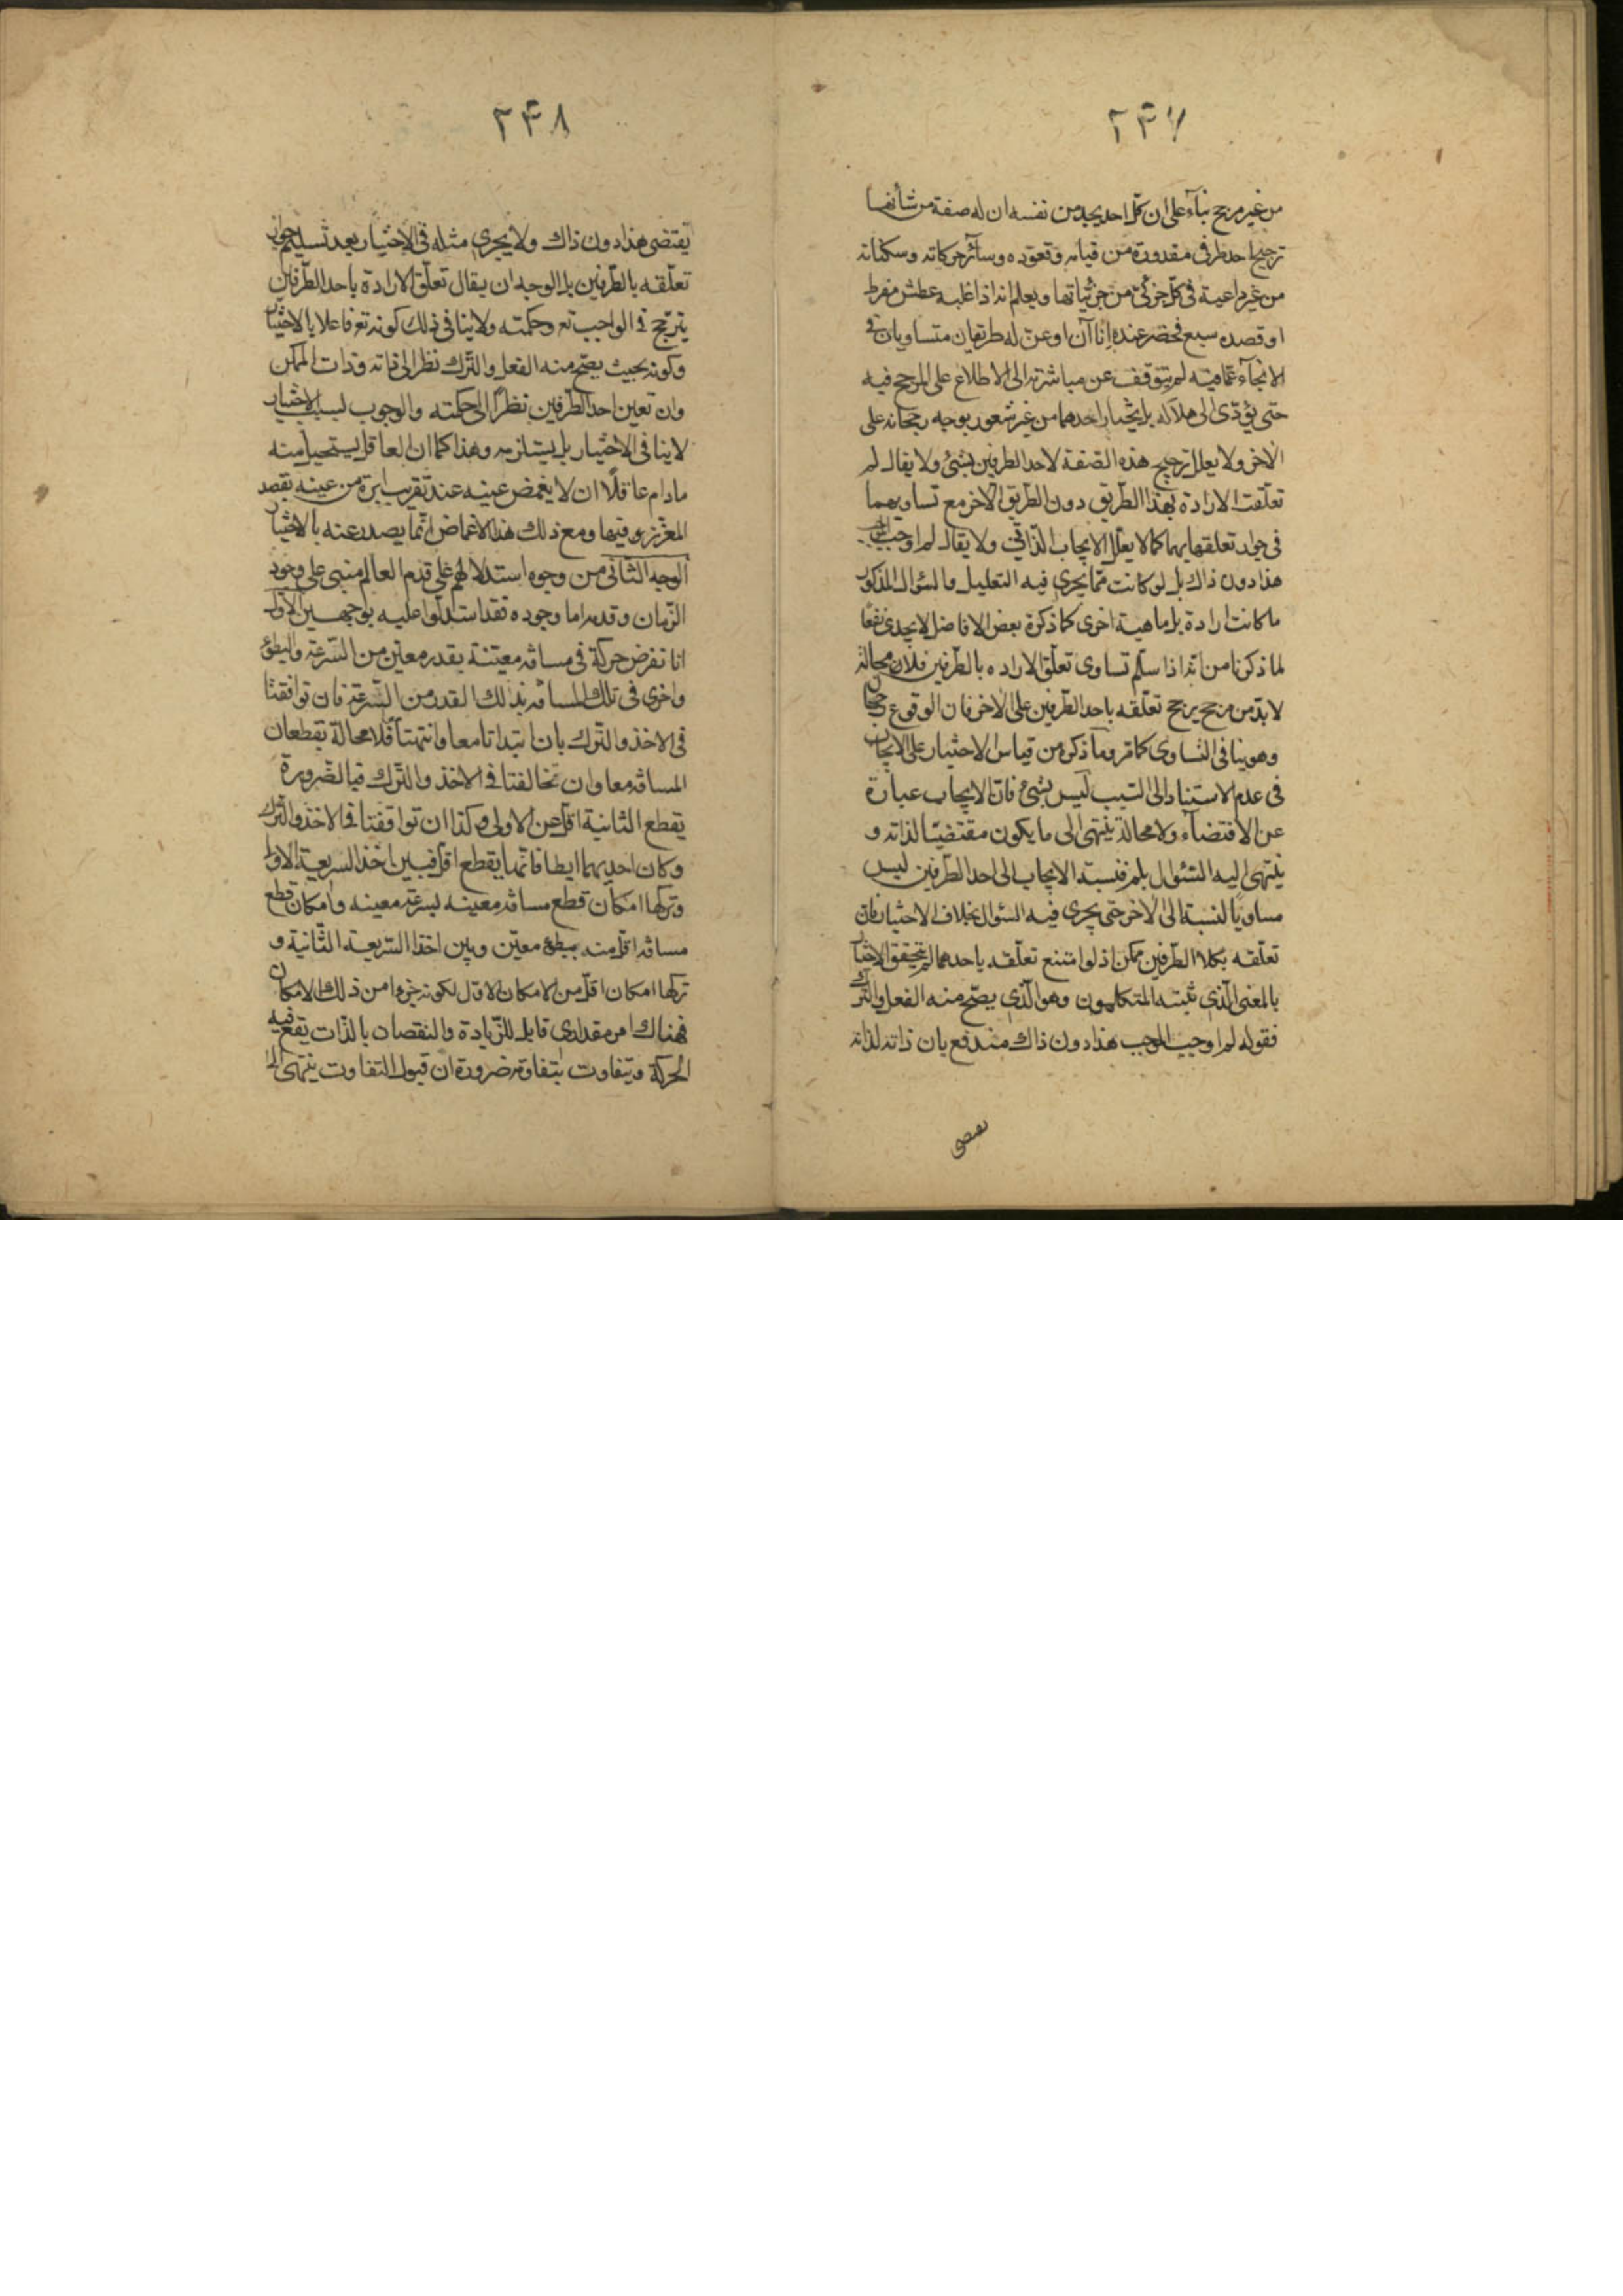 ٢٤٧
من غير مرجح بناء على ان كل احد يجد من نفسه ان له صفة من شأنها
ترجيح احد طرفى مقدوره من قيامه وقعوده وسائر حركاته وسكناته
من غير داعية فى كل جزئى من جزئياتها ويعلم انه اذا غلبه عطش مفرط
او قصده سبع فحضر عنده اناآن او عنّ له طريقان متساويان فى
الانجاء عما فيه لم يتوقف عن مباشرته الى الاطلاع على المرجح فيه
حتى يؤدى الى هلاكه بل يختار احدهما من غير شعور بوجه رجحانه على
الاخر ولا يعلل ترجيح هذه الصفة لاحد الطرفين بشئ ولا يقال لم
تعلقت الارادة بهذا الطريق دون الطريق الاخر مع تساويهما
فى جواز تعلقها بهما كما لا يعلل الايجاب الذاتى ولا يقال لم اوجب الموجب
هذا دون ذاك بل لو كانت مما يجرى فيه التعليل والسؤال المذكور
ما كانت ارادة بل ماهية اخرى كما ذكره بعض الافاضل لا يجدى نفعا
لما ذكرنا من انه اذا سلم تساوى تعلق الاراده بالطرفين فلا محالة
لا بد من مرجح يرجح تعلقه باحد الطرفين على الاخر فان الوقوع رجحان
وهو ينافى التساوى كما مر وما ذكره من قياس الاختيار على الايجاب
فى عدم الاستناد الى السبب ليس بشئ فان الايجاب عبارة
عن الاقتضاء ولا محالة ينتهى الى ما يكون مقتضيا لذاته و
ينتهى اليه السئوال بلم فنسبة الايجاب الى احد الطرفين ليس
مساويا لنسبة الى الاخر حتى يجرى فيه السئوال بخلاف الاختيار فان
تعلقه بكلا الطرفين ممكن اذ لو امتنع تعلقه باحدهما لم يتحقق الاختيار
بالمعنى الذى تثبته المتكلمون وهو الذى يصح منه الفعل والترك
فقوله لم اوجب الموجب هذا دون ذاك مندفع بان ذاته لذاته
يقتضى
٢٤٨
يقتضى هذا دون ذاك ولا يجرى مثله فى الاختيار بعد تسليم جواز
تعلقه بالطرفين بل الوجه ان يقال تعلق الارادة باحد الطرفين
يترجح فى الواجب تع وحكمته ولا ينافى ذلك كونه تع فاعلا بالاختيار
وكونه بحيث يصح منه الفعل والترك نظرا الى ذاته وذات الممكن
وان تعين احد الطرفين نظرا الى حكمته والوجوب بسبب الاختيار
لا ينافى الاختيار بل يستلزمه وهذا كما ان العاقل يستحيل منه
مادام عاقلا ان لا يغمض عينيه عند تقريب ابرة من عينيه بقصد
الغرز فيها ومع ذلك هذا الاغماض انما يصدر عنه بالاختيار
الوجه الثانى من وجوه استدلالهم على قدم العالم مبنى على وجود
الزمان وقدمه اما وجوده فقد استدلوا عليه بوجهين الاول
انا نفرض حركة فى مسافة معينة بقدر معين من السرعة والبطؤ
واخرى فى تلك المسافه بذالك القدر من السرعة فان توافقتا
فى الاخذ والترك بان ابتدأتا معا وانتهتا فلا محالة يقطعان
المسافه معا وان تخالفتا فى الاخذ والترك فبالضرورة
يقطع الثانية اقل عن الاولى وكذا ان توافقتا فى الاخذ والترك
وكان احديهما ابطا فانها يقطع اقل فبين اخذ السريعة الاولى
وتركها امكان قطع مسافه معينه بسرعه معينه وامكان قطع
مسافه اقل منه ببطؤ معين وبين اخذ السريعة الثانية و
تركها امكان اقل من الامكان الاول لكونه جزءا من ذلك الامكان
فهناك امر مقدارى قابل للزيادة والنقصان بالذات يقع فيه
الحركة ويتفاوت بتفاوته ضرورة ان قبول التفاوت ينتهى الى